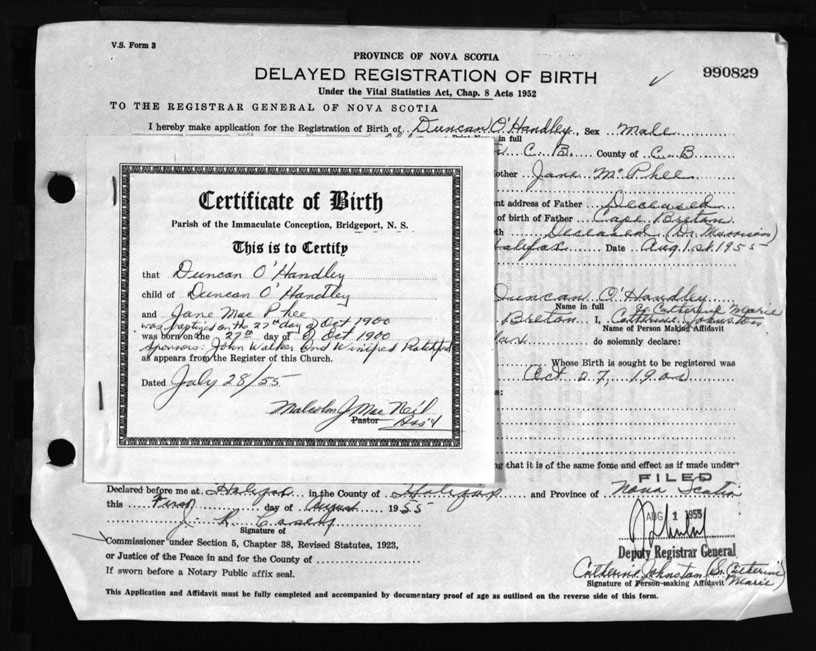 V.S. Form 3
PROVINCE OF NOVA SCOTIA
DELAYED REGISTRATION OF BIRTH
990829
Under the Vital Statistics Act, Chap. 8 Acts 1952
TO THE REGISTRAR GENERAL OF NOVA SCOTIA
I hereby make application for the Registration of Birth of Duncan O'Handley, Sex Male
in full
C. B. County of C. B
other Jane McPhee
nt address of Father Deceased
of birth of Father Cape Breton
th Deceased (Dr. Morrison)
Halifax Date Aug. 1st. 1955
Certificate of Birth
Parish of the Immaculate Conception, Bridgeport, N. S.
This is to Certify
that Duncan O'Handley
child of Duncan O'Handley
and Jane Mac Phee
was baptized on the 27th day of Oct 1900
was born on the 27th day of Oct 1900
Sponsors: John Walker and Winifred Ratchford
as appears from the Register of this Church.
Dated July 28/55
Malcolm J Mac Neil
Pastor Ass't
Duncan O'Handley
Name in full Sr. Catherine Marie
Breton I, Catherine Johnston
Name of Person Making Affidavit
do solemnly declare:
Whose Birth is sought to be registered was
Oct 27, 1900
ng that it is of the same force and effect as if made under
FILED
Declared before me at Halifax in the County of Halifax and Province of Nova Scotia
this First day of August 1955
AUG 1 1955
Signature of
Commissioner under Section 5, Chapter 38, Revised Statutes, 1923,
Deputy Registrar General
or Justice of the Peace in and for the County of
Catherine Johnston (Sr. Catherine Marie)
If sworn before a Notary Public affix seal.
Signature of Person making Affidavit
This Application and Affidavit must be fully completed and accompanied by documentary proof of age as outlined on the reverse side of this form.